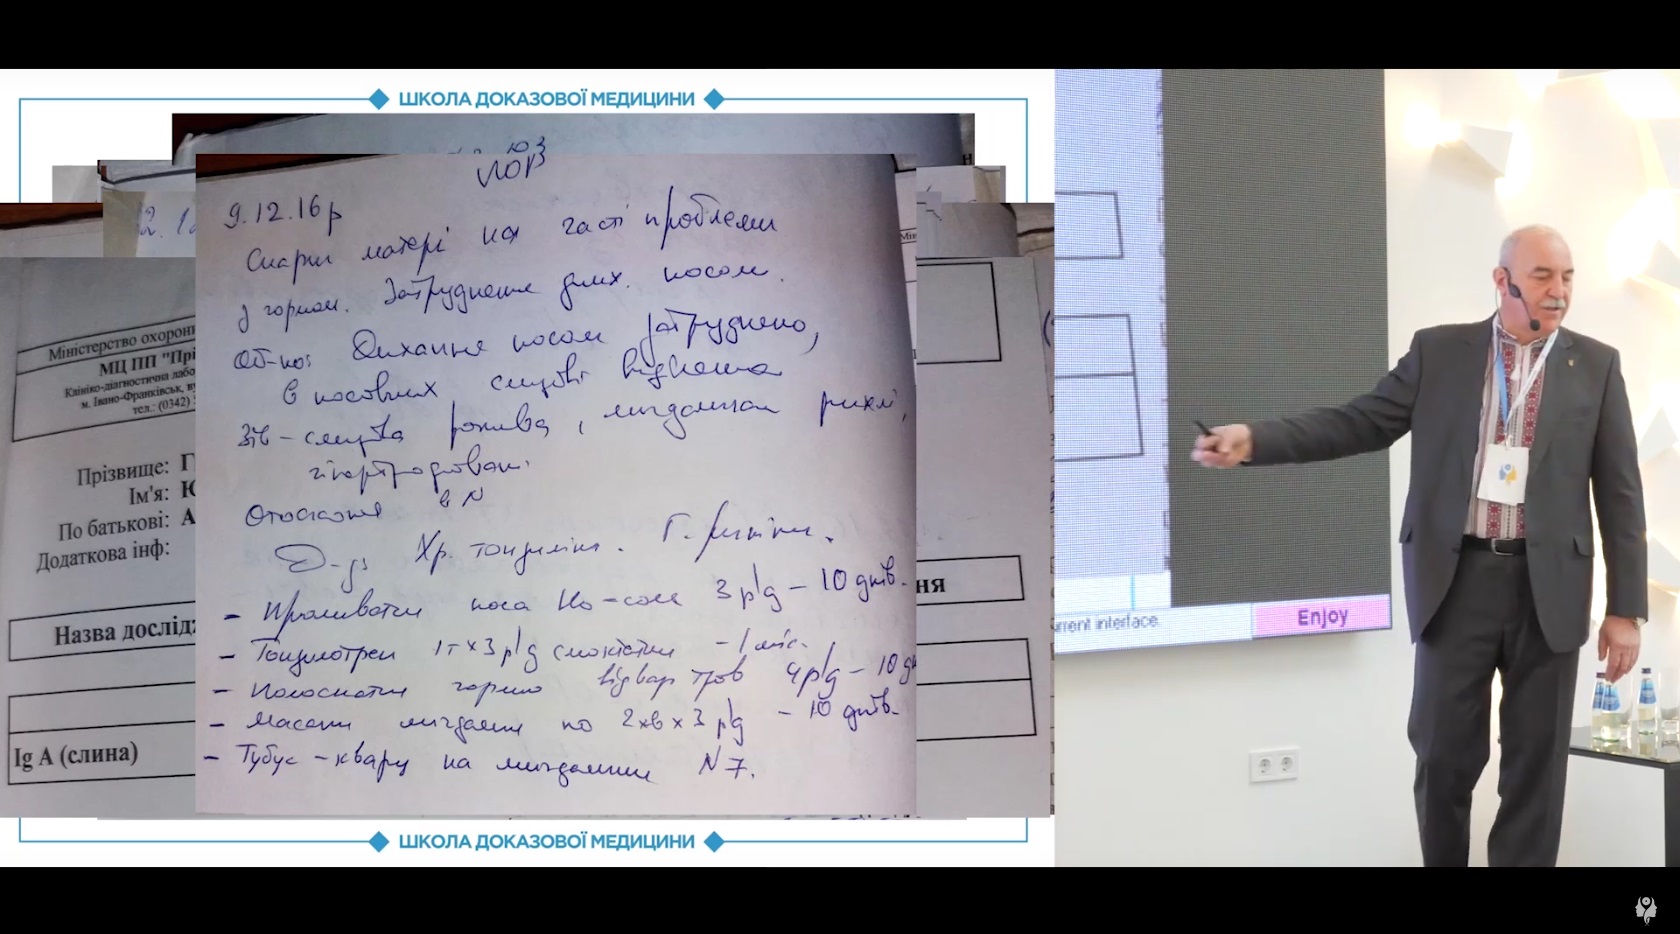 ШКОЛА ДОКАЗОВОЇ МЕДИЦИНИ
ЛОР
9.12.16р
Скарги матері на часті проблеми
з горлом. Затруднене дих. носом.
Об-но: Дихання носом затруднено,
в носових слизові
Зів - слизова рожева, мигдалики рихлі,
гіпертрофовані.
Отоскопія в N
Д-з Хр. тонзиліт. Г. риніт.
- Промивати носа Но-соль 3 р/д - 10 днів.
- Тонзилотрен 1т х 3 р/д смоктати - 1 міс.
- Полоскати горло відвар трав 4 р/д - 10 дн
- Масаж мигдалин по 2хв х 3 р/д - 10 днів.
- Тубус - кварц на мигдалики N 7.
Міністерство охорони
МЦ ПП "Прі
Клініко-діагностична лабо
м. Івано-Франківськ, ву
тел.: (0342)
Прізвище: Г
Ім'я: Ю
По батькові: А
Додаткова інф:
Назва дослід
ння
Ig A (слина)
ШКОЛА ДОКАЗОВОЇ МЕДИЦИНИ
rrent interface.
Enjoy